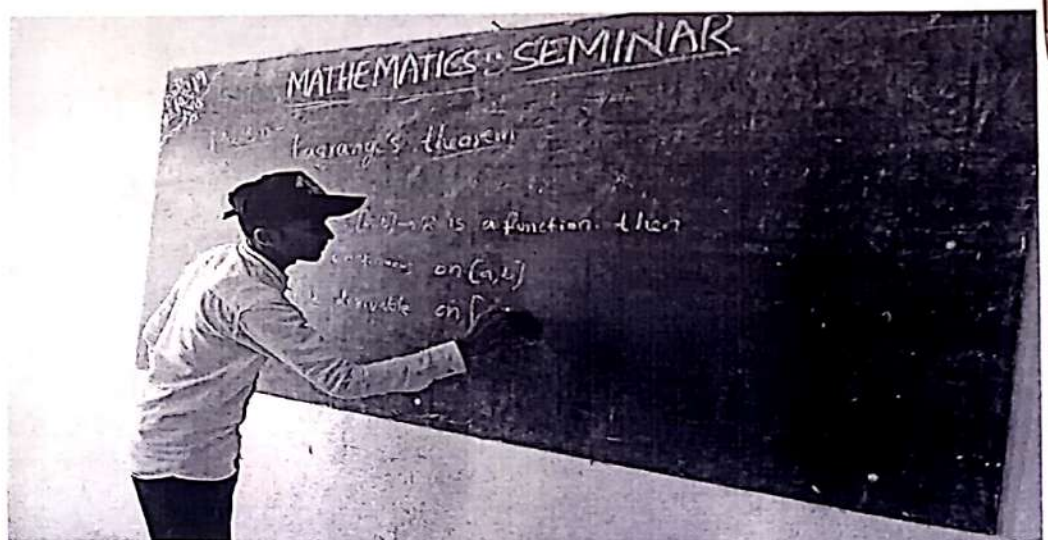 MATHEMATICS SEMINAR
Lagrange's theorem
is a function. then
continuous on [a,b]
derivable on [